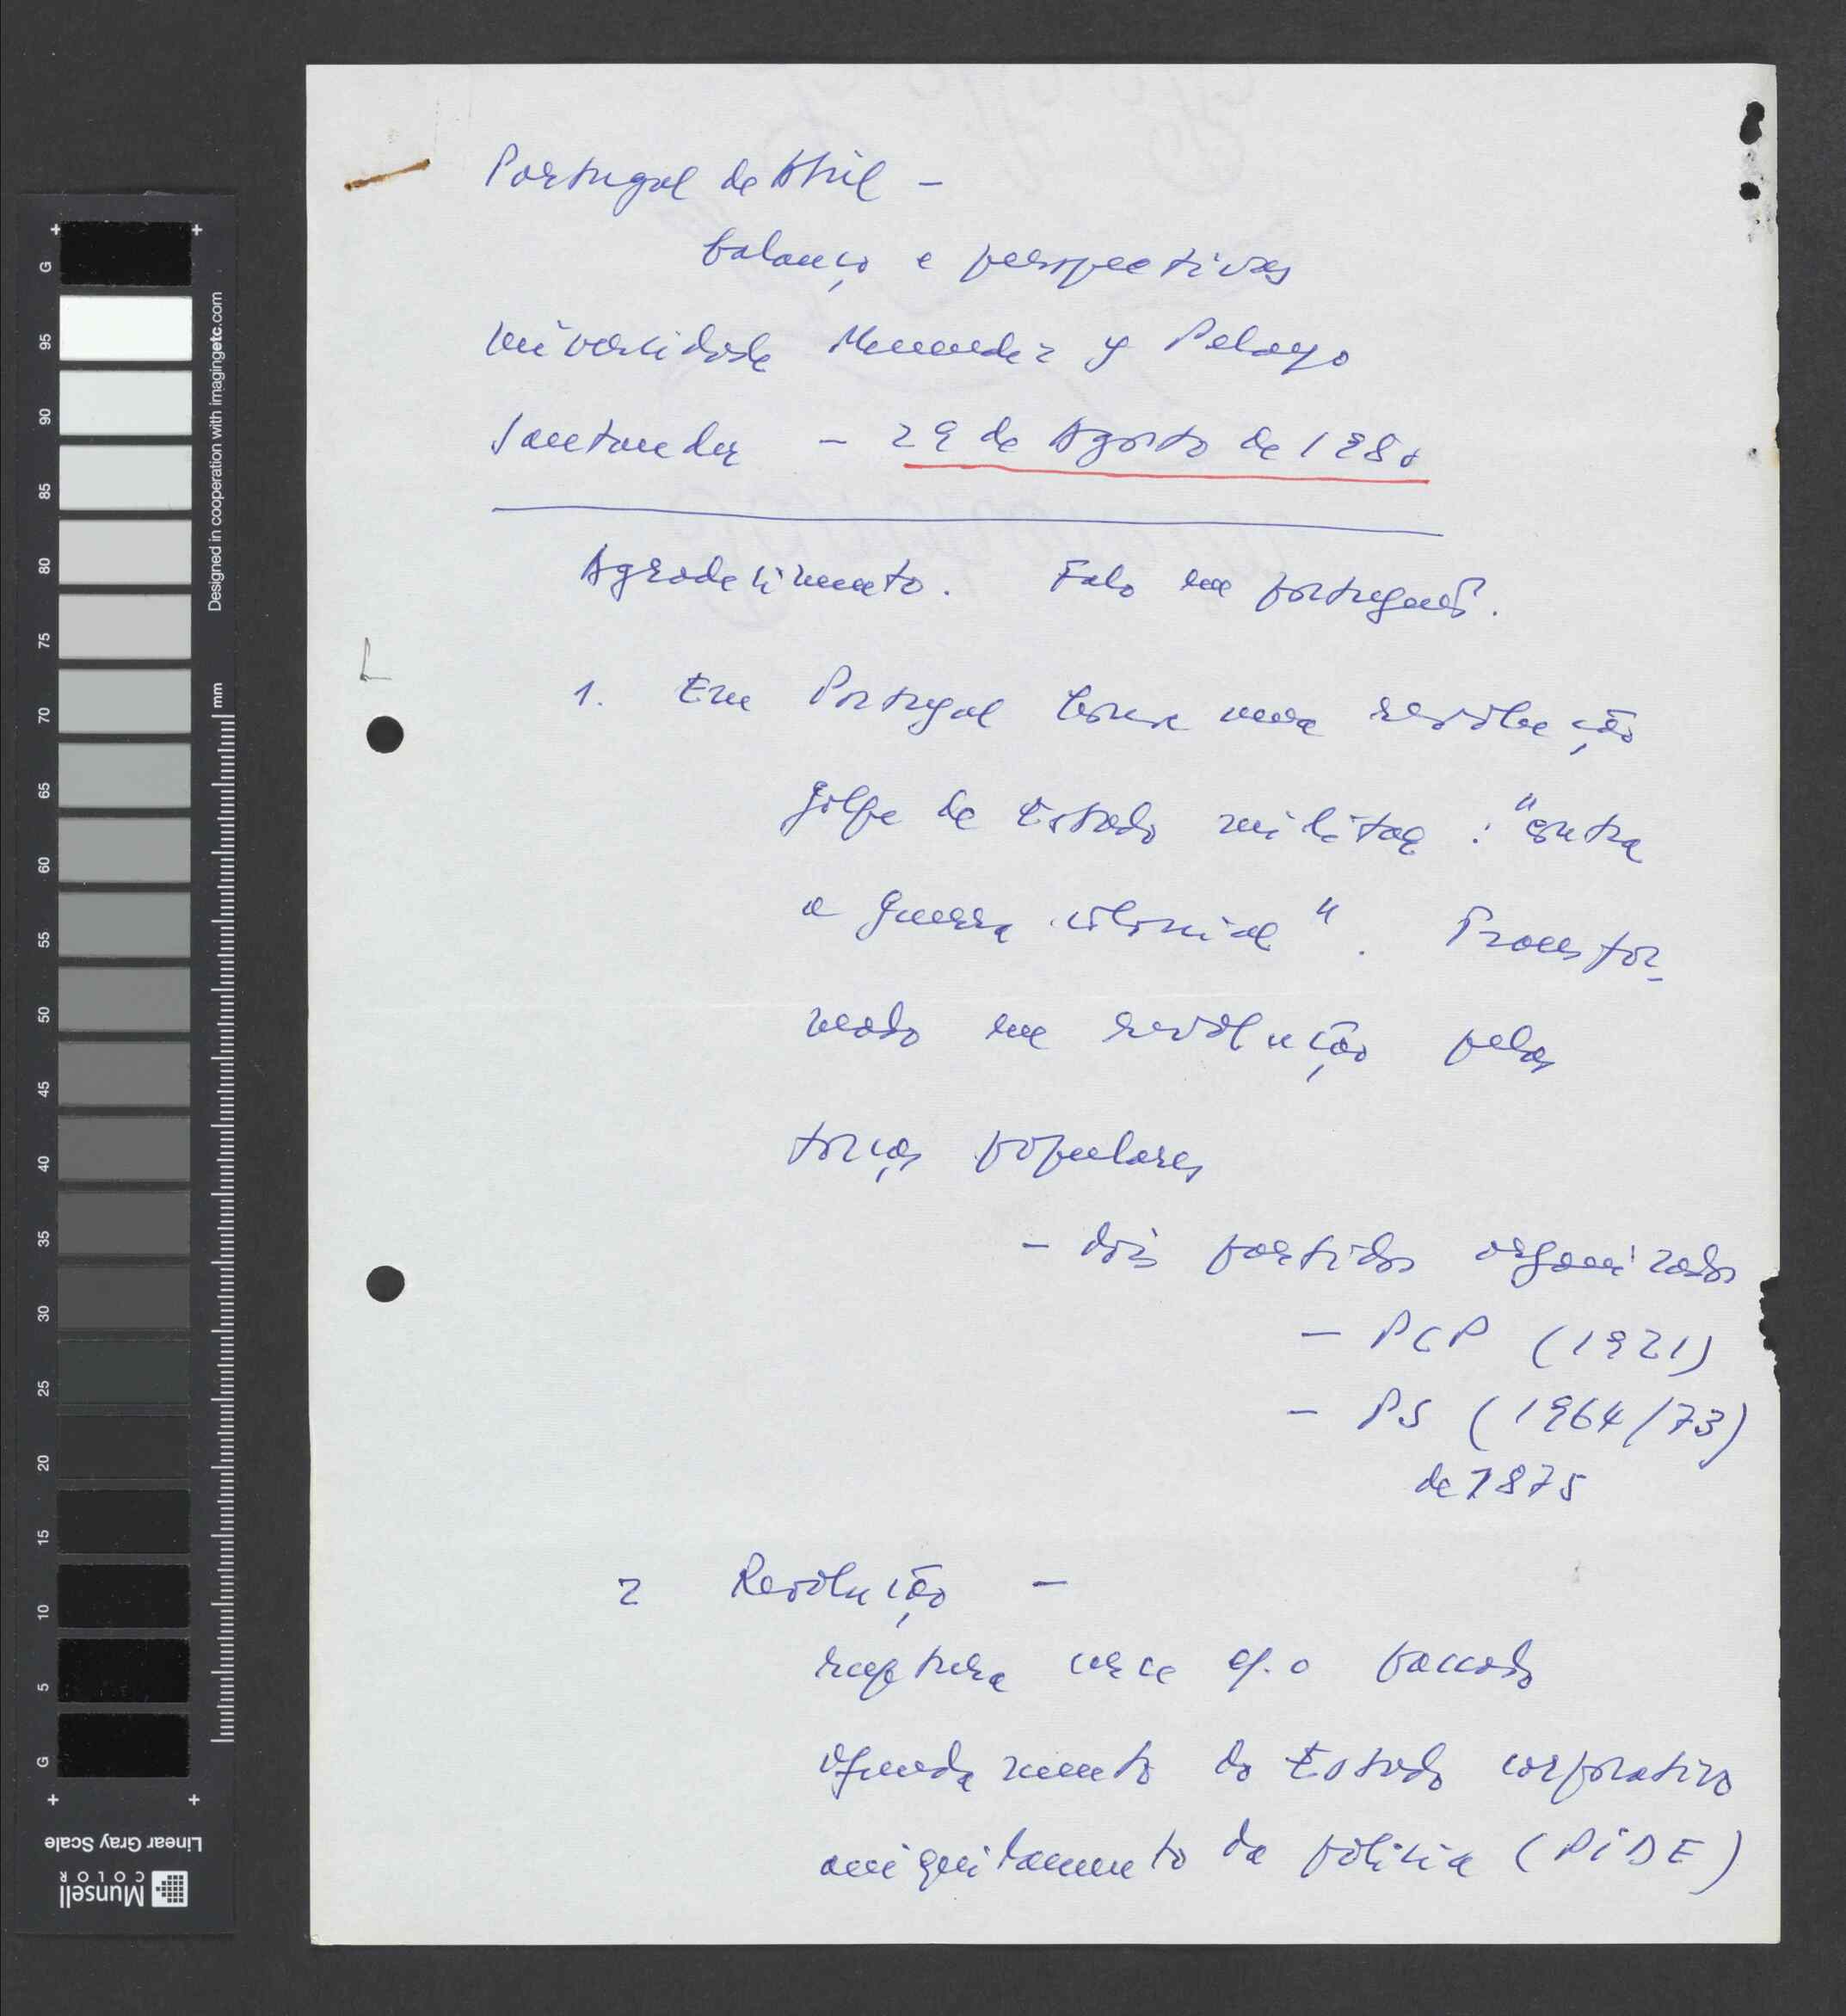 Portugal de Abril -
balanço e perspectivas
Universidade Menendez y Pelayo
Santander - 29 de Agosto de 1980
Agradecimento. Falo em português.
1. Em Portugal houve uma revolução
golpe de Estado militar : "contra
a guerra colonial". Transfor-
mado em revolução pelas
forças populares
- dois partidos organizados
- PCP (1921)
- PS (1964/73)
de 1875
2 Revolução -
ruptura com o passado
afundamento do Estado corporativo
aniquilamento da polícia (PIDE)
L
G
95
90
85
80
75
70
65
60
55
50
45
40
35
30
25
20
15
10
5
G
Designed in cooperation with imagingetc.com
mm
Linear Gray Scale
Munsell
COLOR